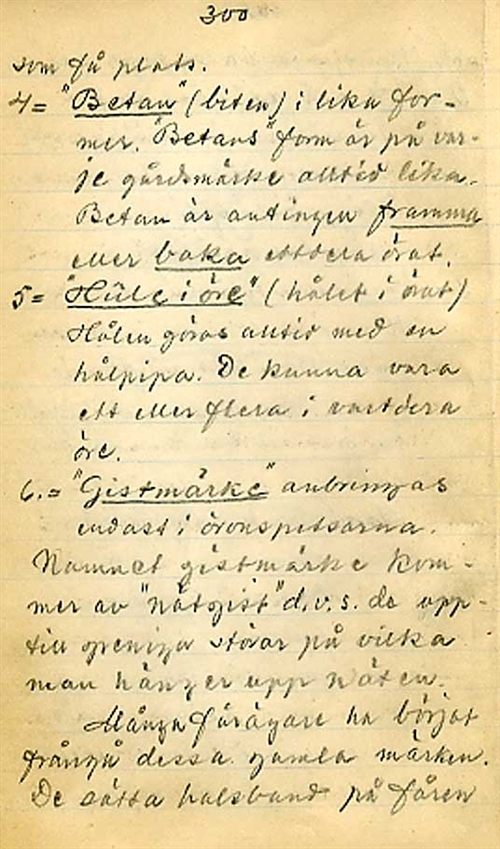 300
som få plats.
4 = "Betan" (biten) i lika for-
mer. "Betans" form är på var-
je gårdsmärke alltid lika.
Betan är antingen framma
eller baka ettdera örat.
5 = "Hûle i öre" (hålet i örat)
Hålen göras alltid med en
hålpipa. De kunna vara
ett eller flera i vartdera
öre.
6. = "Gistmärke" anbringas
endast i öronspetsarna.
Namnet gistmärke kom-
mer av "nätgist" d.v.s. de upp-
till greniga störar på vilka
man hänger upp näten.
Många fårägare ha börjat
frångå dessa gamla märken.
De sätta halsband på fåren